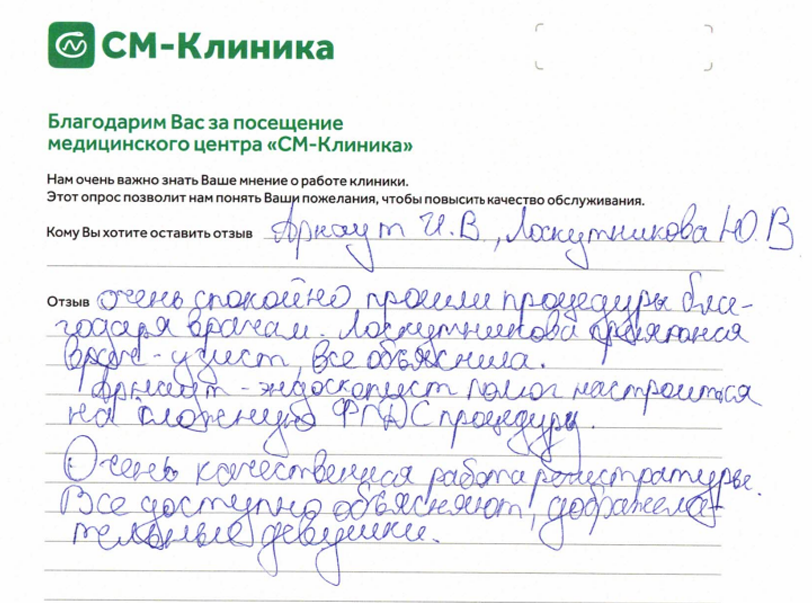 СМ-Клиника
Благодарим Вас за посещение
медицинского центра «СМ-Клиника»
Нам очень важно знать Ваше мнение о работе клиники.
Этот опрос позволит нам понять Ваши пожелания, чтобы повысить качество обслуживания.
Кому Вы хотите оставить отзыв Арнаут И.В., Лоскутникова Ю.В
Отзыв Очень спокойно прошли процедуры бла-
годаря врачам. Лоскутникова приятная
врач-узист, все объяснила.
Арнаут - эндоскопист помог настроиться
на сложную ФГДС процедуру.
Очень качественная работа регистратуры.
Все доступно объясняют, доброжела-
тельные девушки.